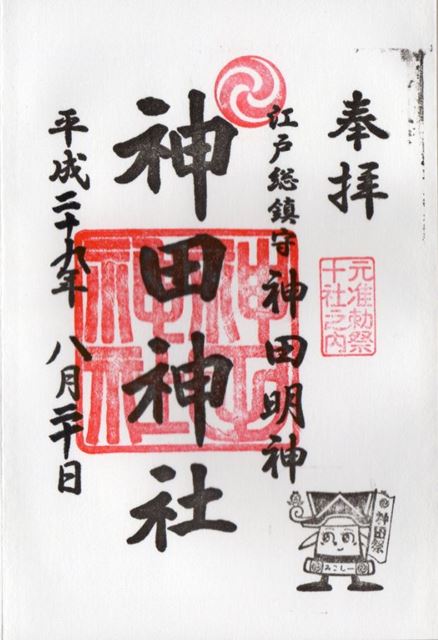 奉拝
元准勅祭
十社之内
江戸総鎮守 神田明神
神田神社
平成二十九年 八月二十日
神田祭
みこしー